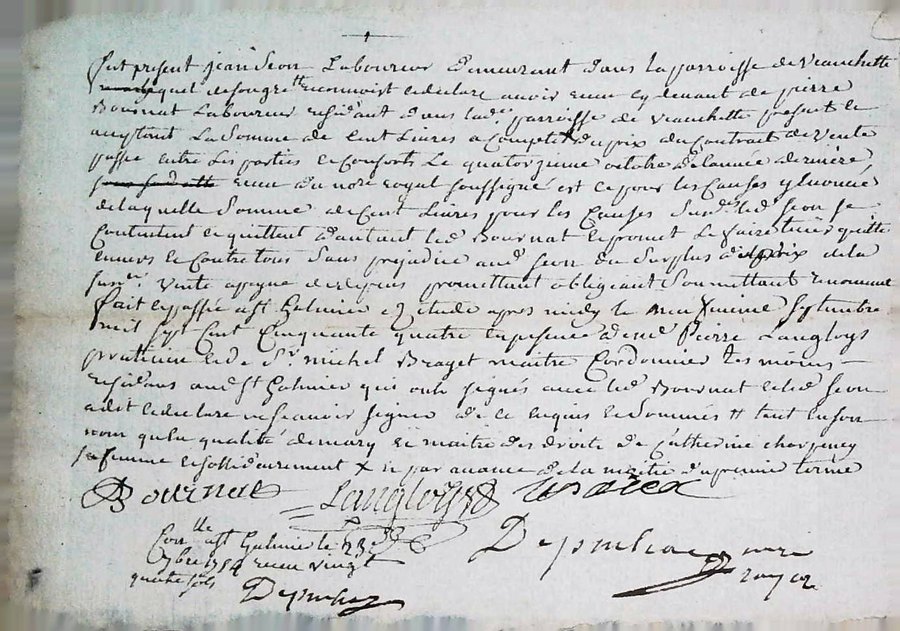 fut present jean seon Laboureur demeurant dans la parroisse de Veauchette
lequel de son gre reconnoist et declare avoir receu cy devant de pierre
Bournat Laboureur residant dans lad parroisse de Veauchette present et
acceptant La Somme de Cent Livres a Compte du prix du Contrat de Vente
passé entre Les parties et Consorts Le quatorzieme octobre de l'année derniere
receu du no.re royal soussigné est ce pour les Causes y enoncé
de laquelle Somme de Cent Livres pour les Causes Susd. led. seon se
Contentent et quittent d'autant led. Bournat et promet Le faire tenir quitte
envers et Contre tous Sans prejudice aud. seon du Surplus du prix de la
susd. Vente
promettant obligeant Soumettant renonceant
fait et passé a st Galmier etude apres midy le neufvieme Septembre
mil sept Cent Cinquante quatre en presence de me. Pierre Langloys
praticien et de Sr. michel Braget maitre Cordonnier Tes moins
residans aud. st Galmier qui ont signés avec led. Bournat et led. seon
a dit et declare ne scavoir signer de ce enquis et sommés # tant en son
nom qu'en qualité de mary et maitre des droits de Catherine
sa femme et sollidairement X et par avance de la moitié du premier terme
Bournat Langloys
Con.lle a st Galmier le 23e
7bre 1754 receu vingt
quatre sols